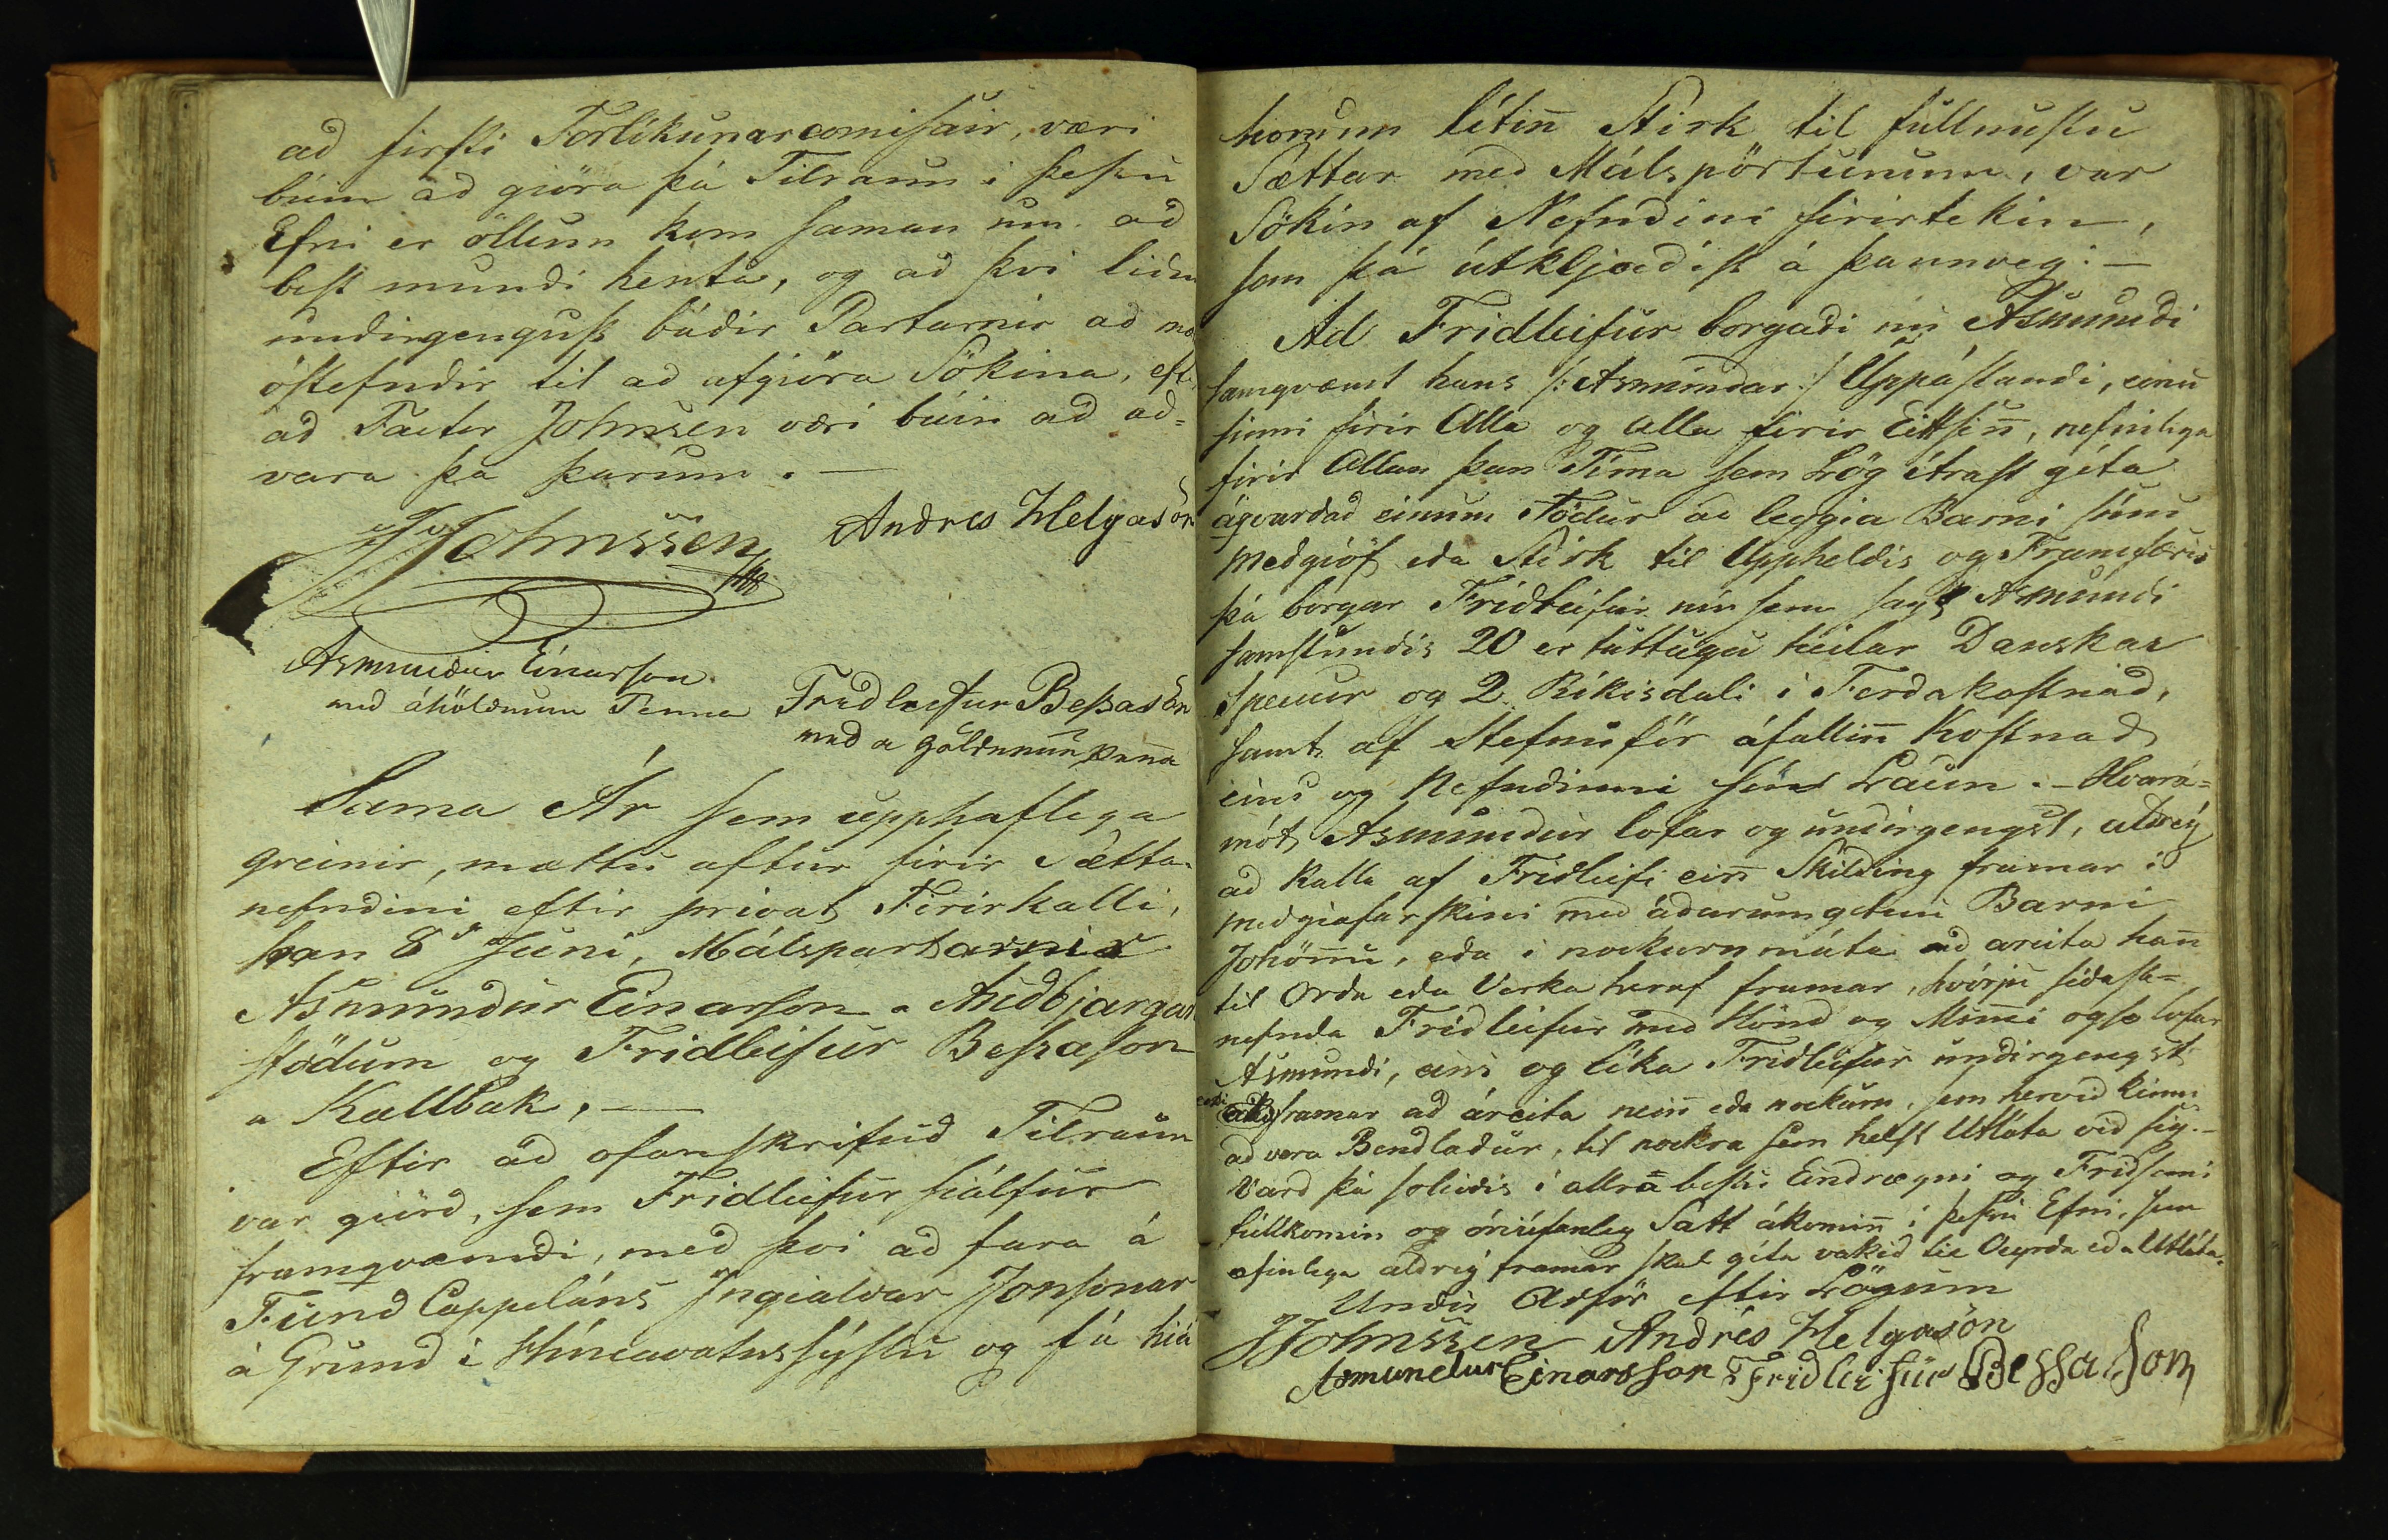 ad firsti Forlikunarcomissair, væri
búin ad giöra þá Tilraun i þessu
Efni er öllum kom saman um ad
best mundi henta, og ad þvi lidnu
undirgengust bádir Partarnir ad mæta
óstefndir til ad afgiöra Sökina, eft
ad Factor Johnsen væri búin ad ad=
vara þa þarum. —
JJohnssen
Andres Helgasön
Asmundur Einarson
med áhöldnum Penna
Fridleifur Bessasön
med a haldenum penna
Sama Ár sem upphaflega
greinir, mættu aftur firir Sætta-
nefndini eftir privat Firirkalli,
þan 8da Juni, Málspartarnir
Asmundur Einarson a Audbjargar
stödum og Fridleifur Bessason
a Kallbak, —
Eftir ad ofanskrifud Tilraun
var giörd, sem Fridleifur siálfur
framqvæmdi, med þvi ad fara á
Fund Cappeláns Ingialdar Jonsonar
á Grund i Húnavatnssýslu og fá hiá
honum lítinn Stirk til fullnustu
Sættar med Málspörtunum, var
Sökin af Nefndini firirtekin,
sem þá útkljádist á þannveg: —
Ad Fridleifur borgadi nú Asmundi
samqvæmt hans /: Asmundar :/ Uppástandi, einu
sinni firir Alla og alla firir Eittsinn, nefnilega
firir Allan þan Tíma sem Lög ítrast géta
áqvardad einum Födur ad leggia Barni sínu
medgiöf eda Stirk til Uppheldis og Framfæris
þá borgar Fridleifur nú sem sagt Asmundi
samstundis 20 er tuttugu heilar Danskar
Speciur og 2 Rikisdali i Ferdakostnad,
samt af Stefnuför áfallinn Kostnad
eins og Nefndinni sín Laun. — Hvará=
mót Asmundur lofar og undirgengst, aldrey
ad kalla af Fridleifi einn Skilding framar i
medgiafarskini med ádurumgetnu Barni
Jóhönnu, eda i nockurn máta ad areita hann
til Orda eda Verka heraf framar, hvörju sidast=
nefnda Fridleifur med Hönd og Munni ogso lofar
Asmundi, eins og lika Fridleifur undirgengst
ecki framar ad áreita neinn eda nockurn, sem hervid kinni
ad vera Bendladur, til nockra sem helst Utláta vid sig. —
Vard þá soleidis i allra bestu Eindrægni og Fridsemi
fullkomin og óriúfanleg Sátt ákominn i þessu Efni, sem
efinlega aldrig framar skal géta vakid til Oeyrda eda Utláta.
Undir Adför eftir Lögum
JJohnssen Andrés Helgasön
Asmundur Einarsson Fridleifur Bessason